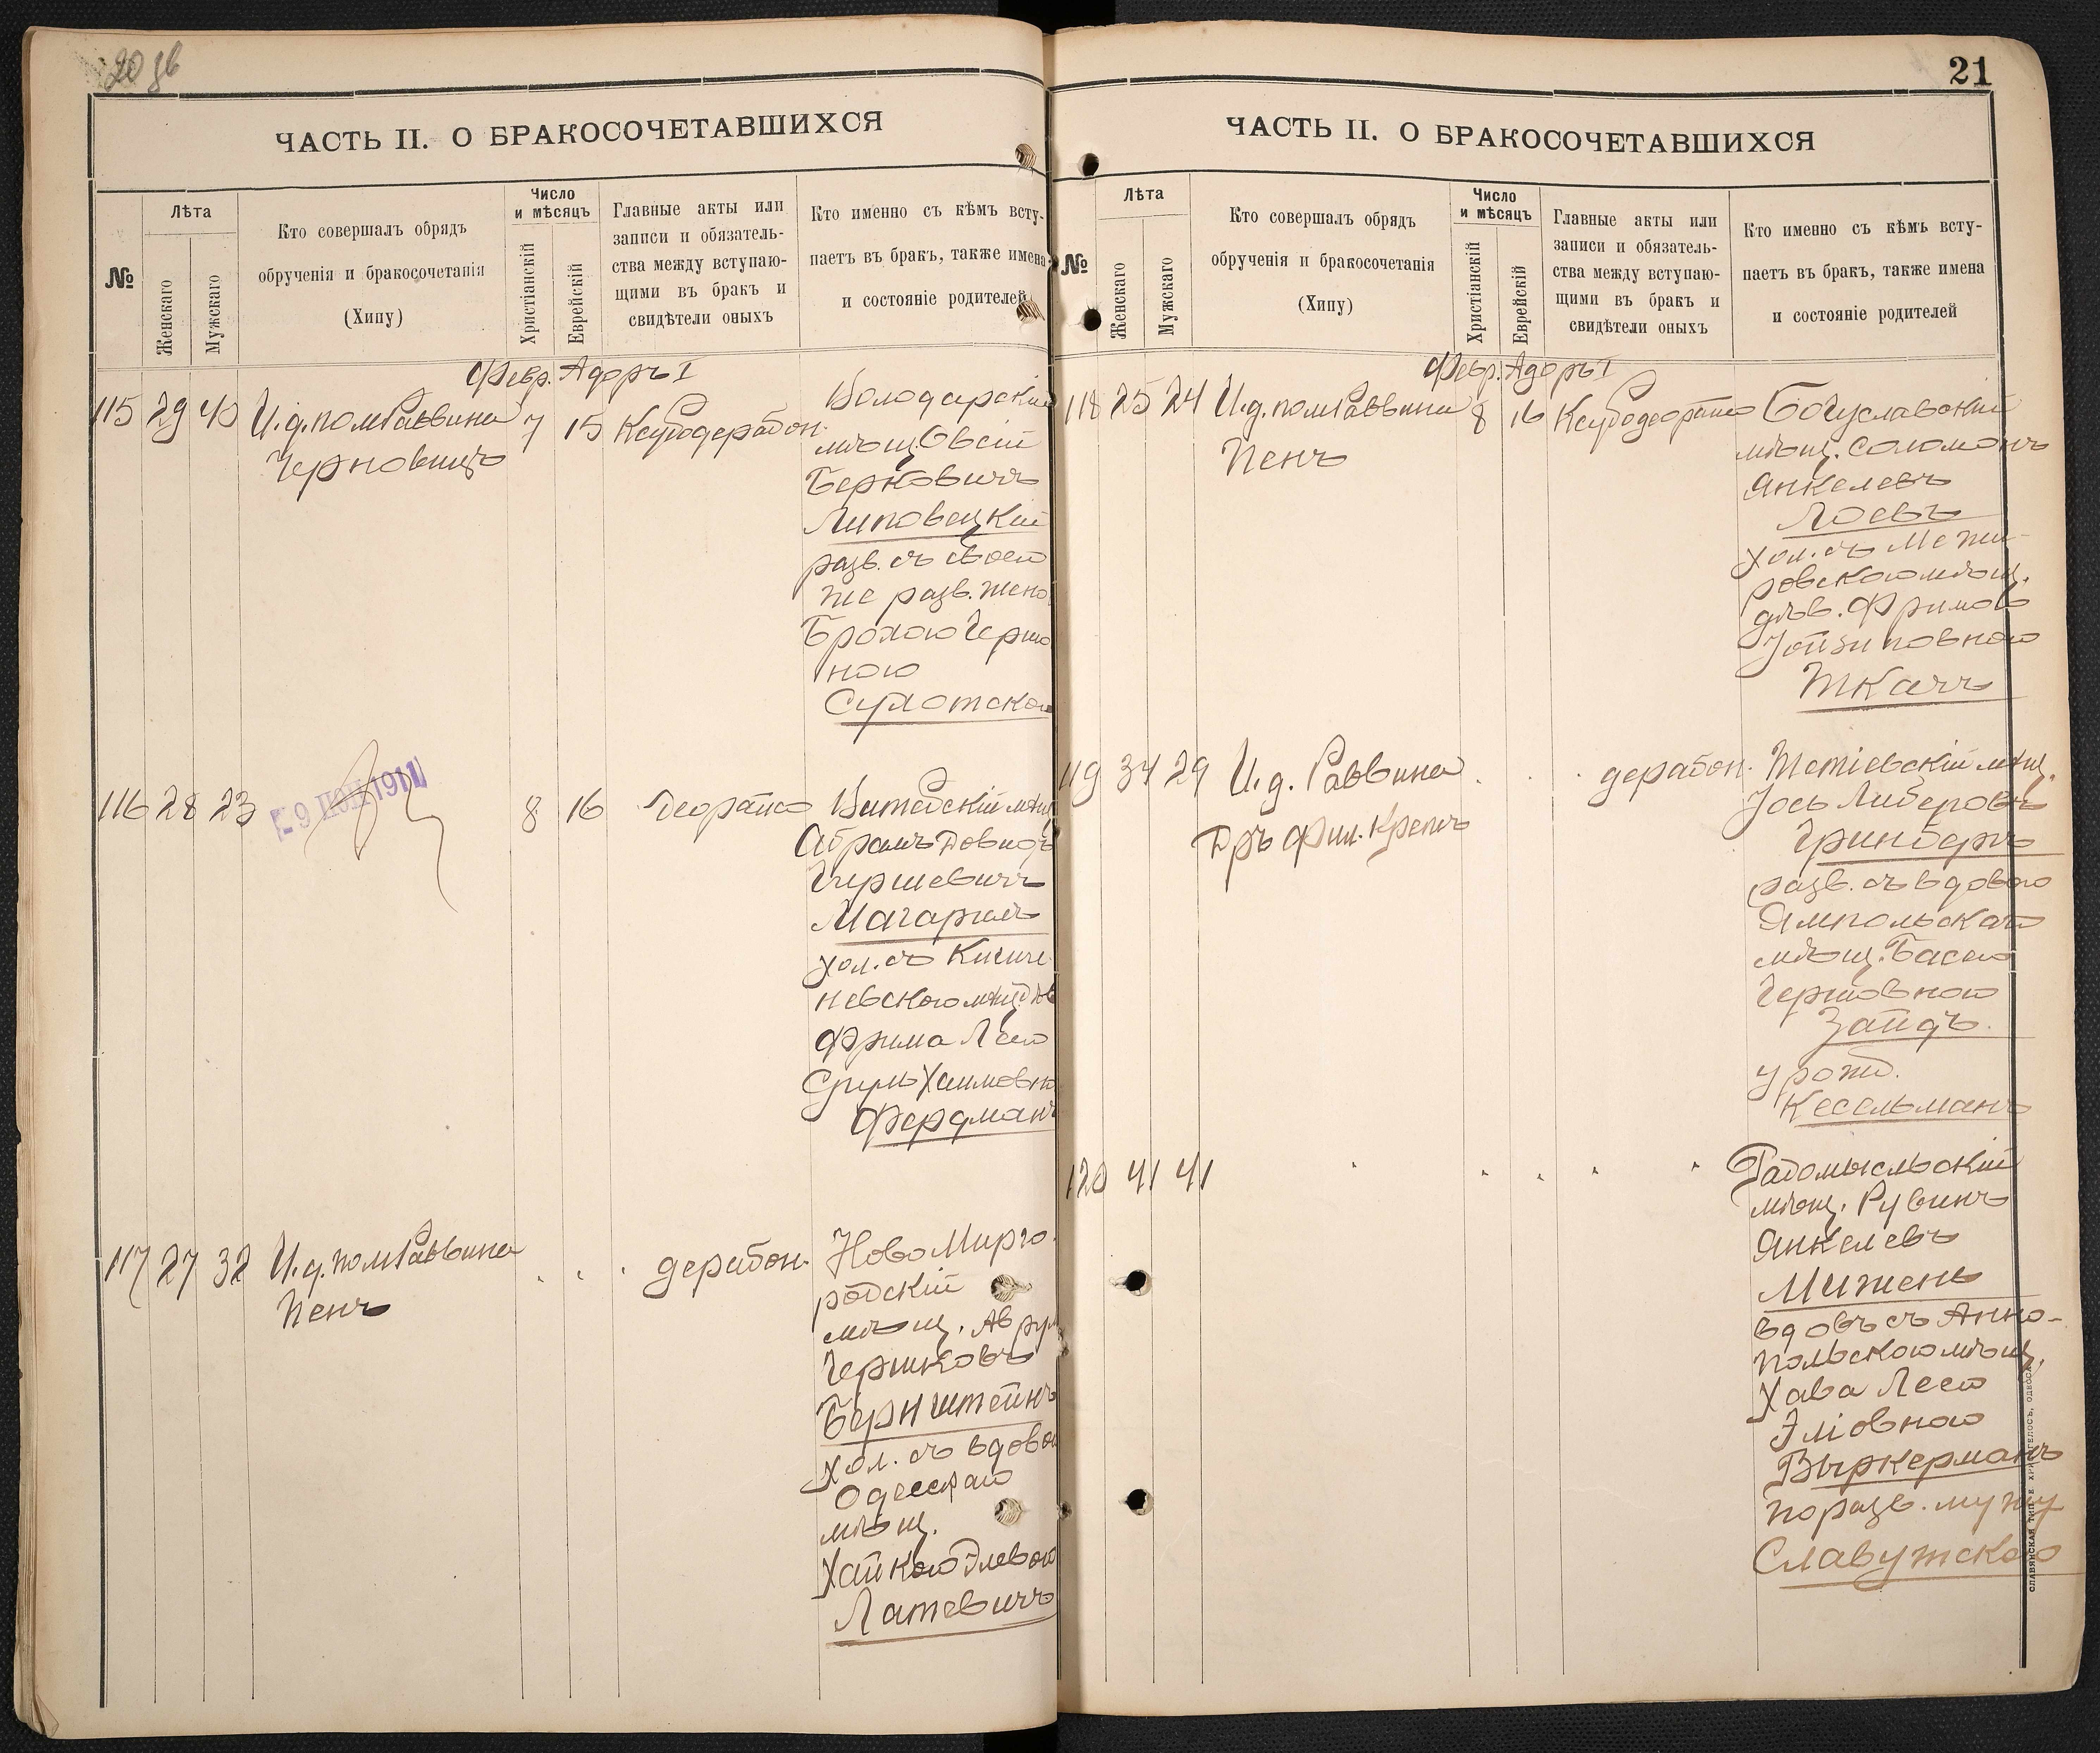 20 зв
ЧАСТЬ II. О БРАКОСОЧЕТАВШИХСЯ
№
Лѣта
Женскаго
Мужскаго
Кто совершалъ обрядъ
обрученія и бракосочетанія
(Хипу)
Число
и мѣсяцъ
Христіанскій
Еврейскій
Главные акты или
записи и обязатель-
ства между вступаю-
щими въ бракъ и
свидѣтели оныхъ
Кто именно съ кѣмъ всту-
паетъ въ бракъ, также имена
и состояніе родителей
Февр. Адоръ I
115 29 40 И.д. пом Раввина 7 15 Ксубодерабон. Володарскій
Черновицъ
мѣщ Овсій
Берковичъ
Липовецкій
разв. съ своею
же разв. жено
Брохою Герш
ною
Сулотскою
116 28 23 8 16 деорайсо Витебскій мѣщ
9 ІЮН 1911
Абрамъ Довидъ
Гершевичъ
Магарилъ
хол. съ Кише
невскою мѣщ дѣв
Фрима Лею
Сруль Хаимовн
Фердманъ
117 27 32 И.д. пом Раввина дерабон. Ново Мирго
Пенъ
родскій
мѣщ. Аврум
Гершковъ
Бернштейнъ
хол. съ вдовою
Одесскаю
мѣщ.
Хайкою Элевою
Латевичъ
21
ЧАСТЬ II. О БРАКОСОЧЕТАВШИХСЯ
№
Лѣта
Женскаго
Мужскаго
Кто совершалъ обрядъ
обрученія и бракосочетанія
(Хипу)
Число
и мѣсяцъ
Христіанскій
Еврейскій
Главные акты или
записи и обязатель-
ства между вступаю-
щими въ бракъ и
свидѣтели оныхъ
Кто именно съ кѣмъ всту-
паетъ въ бракъ, также имена
и состояніе родителей
Февр. Адоръ I
118 25 24 И.д. пом Раввина 8 16 Ксубодеорайсо Богуславскій
Пенъ
мѣщ. Соломонъ
Янкелевъ
Лоевъ
хол. съ Межи-
ровскою мѣщ.
дѣв. Фримою
Іойзиповною
Ткачъ
119 34 29 И.д. Раввина дерабон. Тетіевскій мѣщ.
Дръ Фил. Крепсъ
Іось Либеровъ
Гринбергъ
разв. съ вдовою
Ямпольскаю
мѣщ. Басею
Гершовною
Зайдъ.
урожд.
Кесельманъ
120 41 41 Радомысльскій
мѣщ. Рувинъ
Янкелевъ
Мижень
вдовъ съ Анно-
польскою мѣщ.
Хава Лею
Эліовною
Выркерманъ
по разв. мужу
Славутскою
СЛАВЯНСКАЯ ТИП. Е. ХРИСОГЕЛОСЪ, ОДЕССА